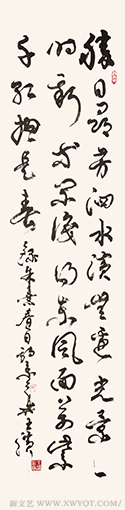 勝日尋芳泗水濱無邊光景一
時新等閒識得東風面萬紫
千紅總是春 錄朱熹春日詩
新文艺 WWW.XWYQT.COM